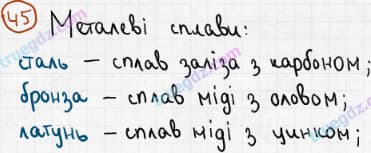 45 Металеві сплави:
сталь – сплав заліза з карбоном;
бронза – сплав міді з оловом;
латунь – сплав міді з цинком;
truegdz.com